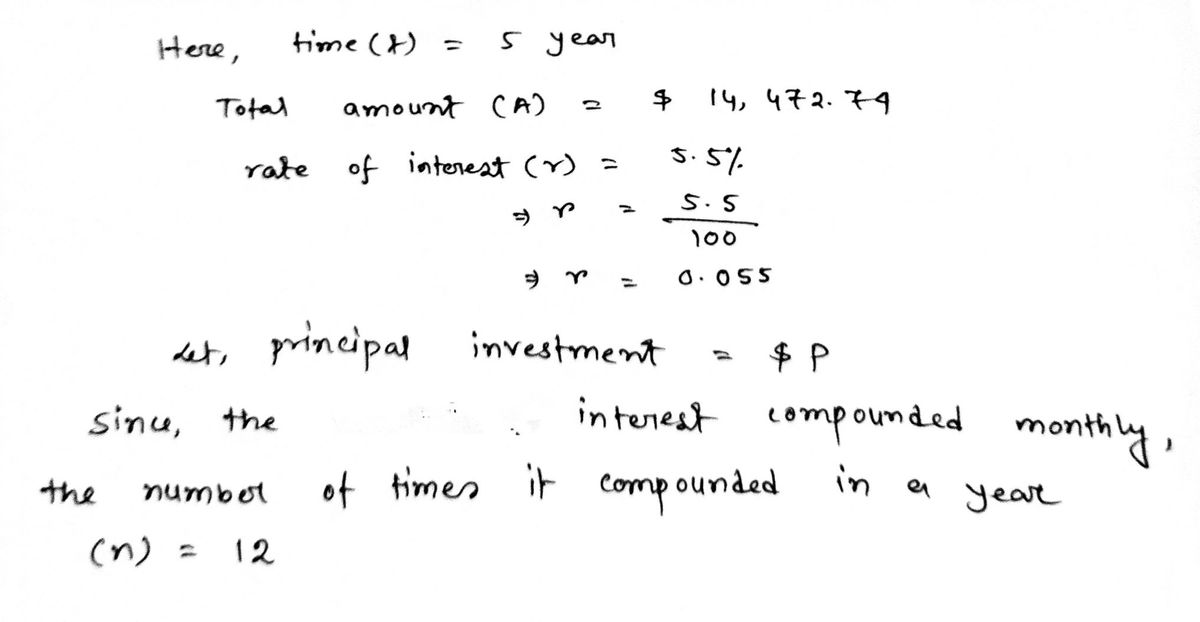 Here, time (t) = 5 year
Total amount (A) = $ 14,472.74
rate of interest (r) = 5.5%
⇒ r = 5.5/100
⇒ r = 0.055
Let, principal investment = $ P
Since, the interest compounded monthly,
the number of times it compounded in a year
(n) = 12